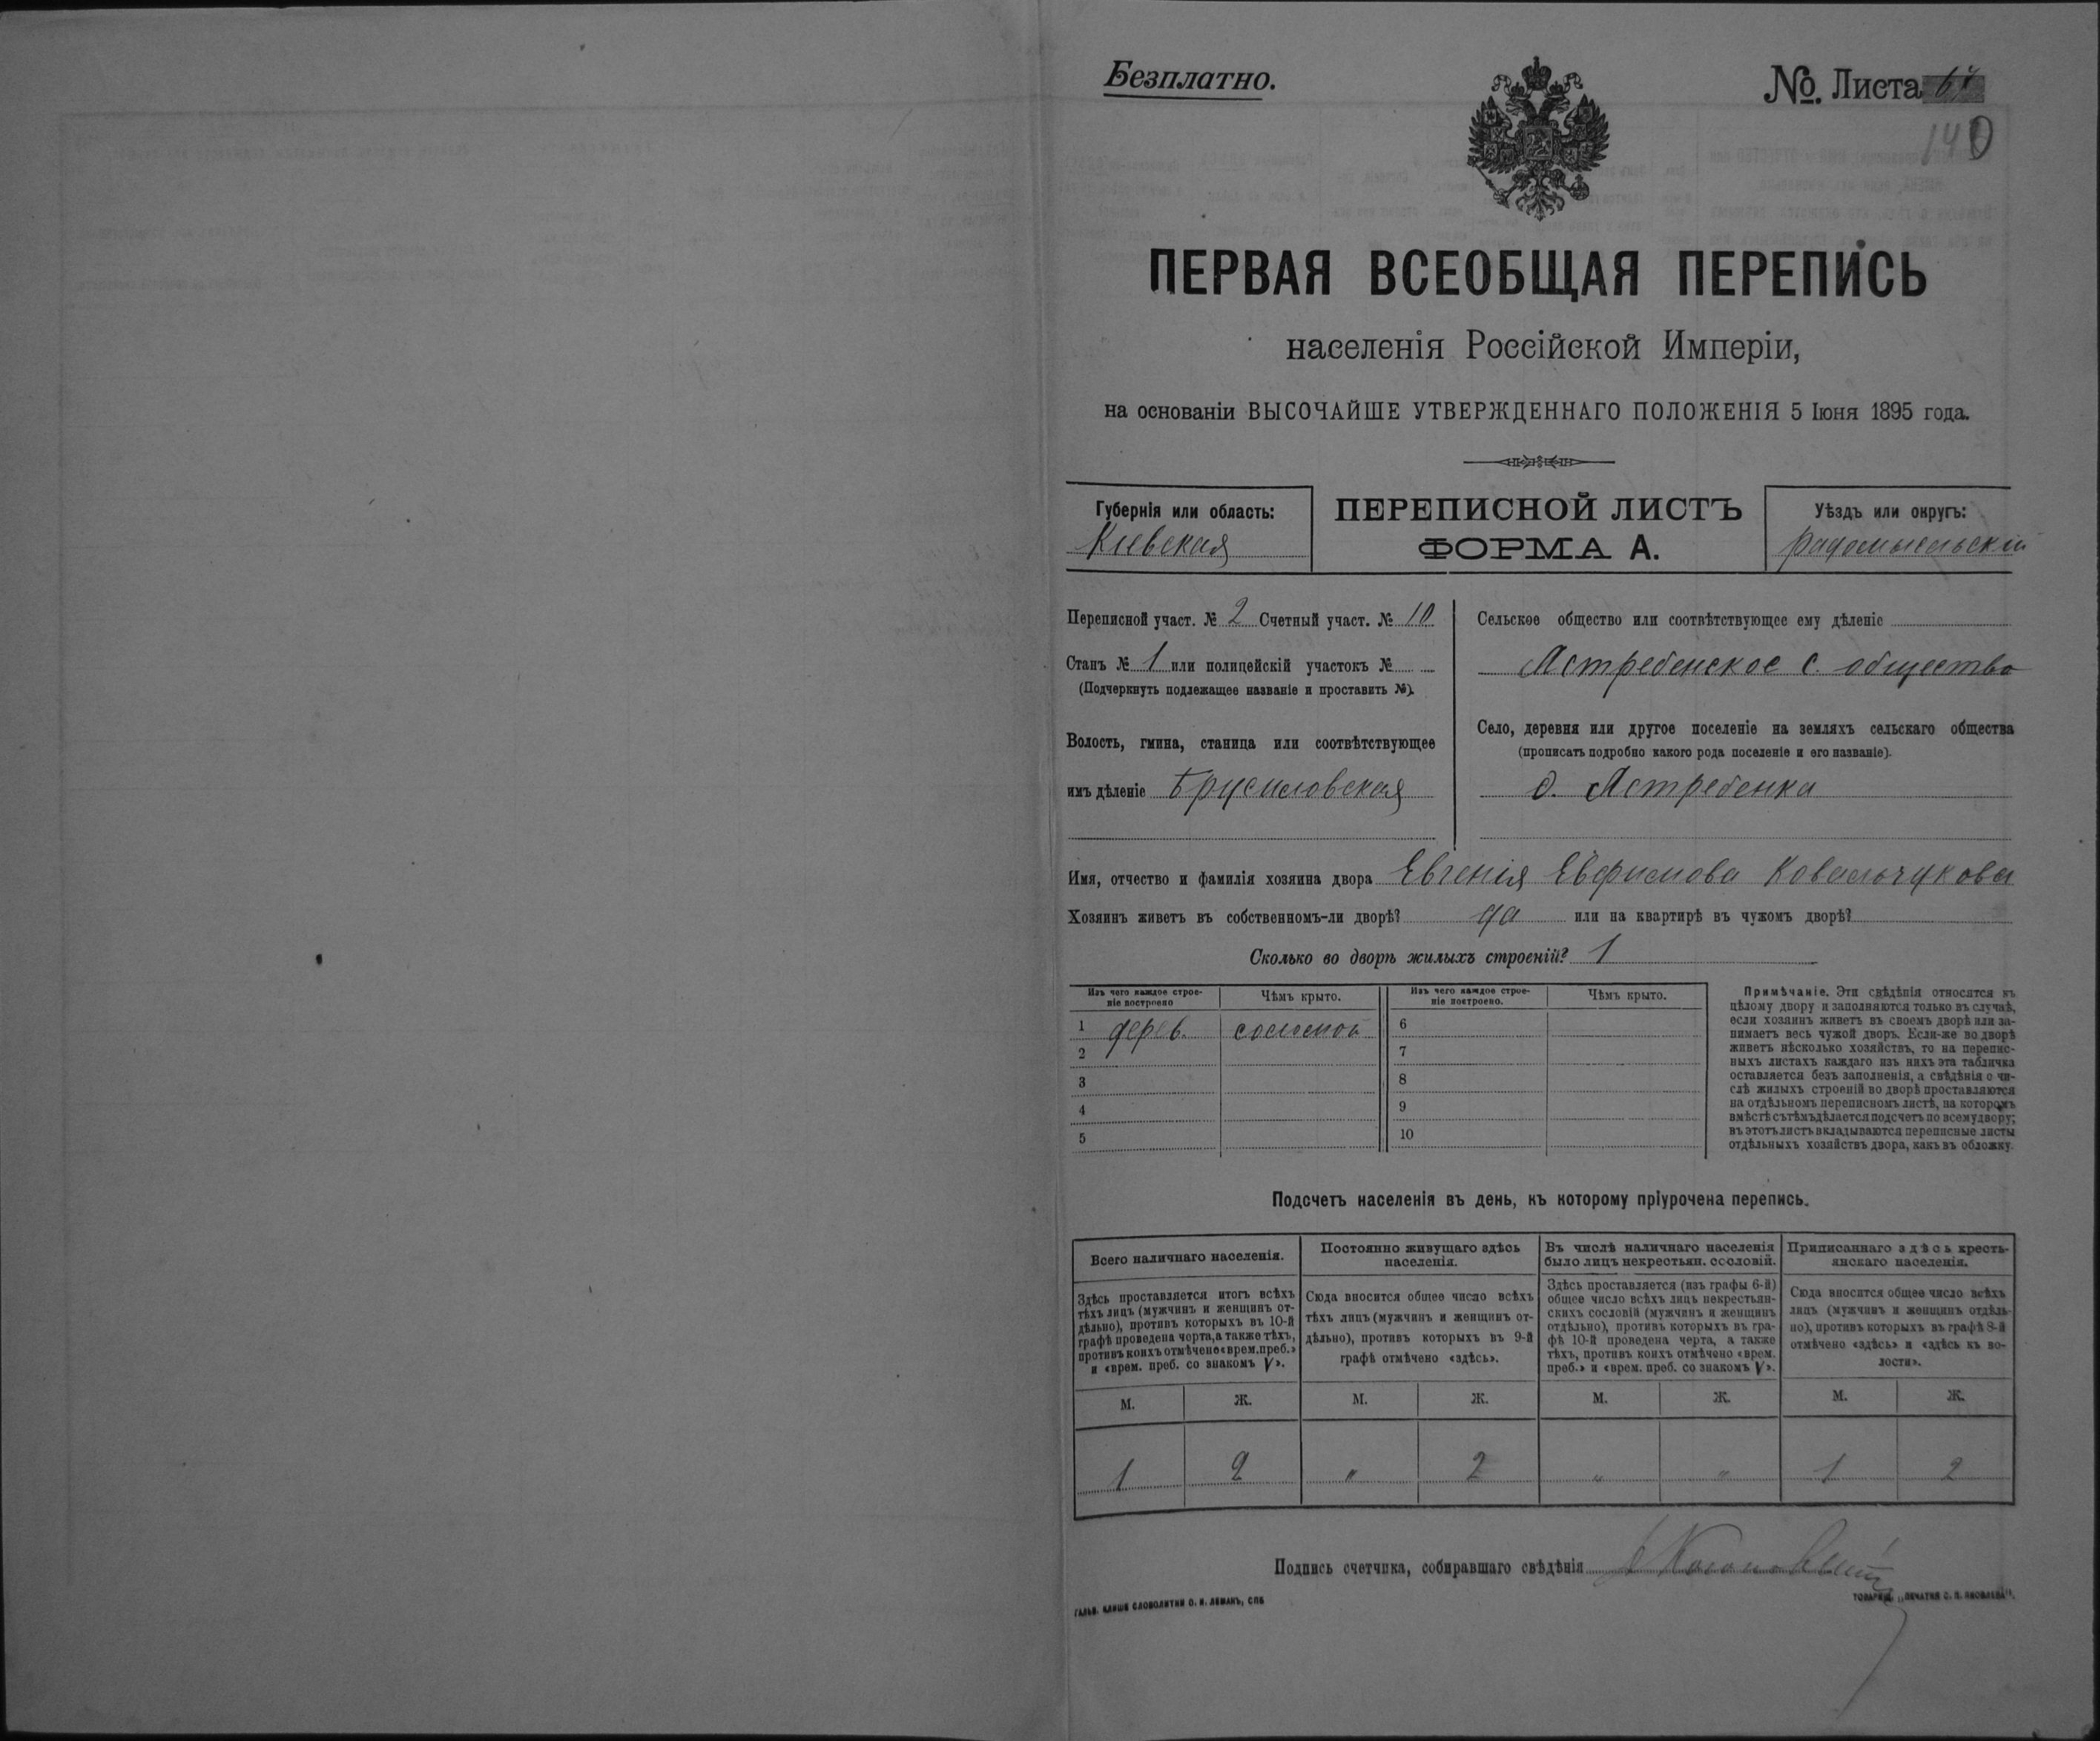 Безплатно.
№ Листа
140
ПЕРВАЯ ВСЕОБЩАЯ ПЕРЕПИСЬ
населенія Россійской Имперіи,
на основаніи ВЫСОЧАЙШЕ УТВЕРЖДЕННАГО ПОЛОЖЕНІЯ 5 Іюня 1895 года.
Губернія или область:
Кіевская
ПЕРЕПИСНОЙ ЛИСТЪ
ФОРМА А.
Уѣздъ или округъ:
Радомысльскій
Переписной участ. № 2 Счетный участ. № 10
Станъ № 1 или полицейскій участокъ №
(Подчеркнуть подлежащее названіе и проставить №).
Волость, гмина, станица или соотвѣтствующее
имъ дѣленіе Брусиловская
Сельское общество или соотвѣтствующее ему дѣленіе
Ястребенское с. общество
Село, деревня или другое поселеніе на земляхъ сельскаго общества
(прописать подробно какого рода поселеніе и его названіе).
д. Ястребенка
Имя, отчество и фамилія хозяина двора Евгенія Евфимова Ковальчукова
Хозяинъ живетъ въ собственномъ-ли дворѣ? да или на квартирѣ въ чужомъ дворѣ?
Сколько во дворѣ жилыхъ строеній? 1
Изъ чего каждое строе-
ніе построено
Чѣмъ крыто.
Изъ чего каждое строе-
ніе построено.
Чѣмъ крыто.
1 дерев. соломой 6
2 7
3 8
4 9
5 10
Примѣчаніе. Эти свѣдѣнія относятся къ
цѣлому двору и заполняются только въ случаѣ,
если хозяинъ живетъ въ своемъ дворѣ или за-
нимаетъ весь чужой дворъ. Если-же во дворѣ
живетъ нѣсколько хозяйствъ, то на перепис-
ныхъ листахъ каждаго изъ нихъ эта табличка
оставляется безъ заполненія, а свѣдѣнія о чи-
слѣ жилыхъ строеній во дворѣ проставляются
на отдѣльномъ переписномъ листѣ, на которомъ
вмѣстѣ съ тѣмъ дѣлается подсчетъ по всему двору;
въ этотъ листъ вкладываются переписные листы
отдѣльныхъ хозяйствъ двора, какъ въ обложку.
Подсчетъ населенія въ день, къ которому пріурочена перепись.
Всего наличнаго населенія.
Здѣсь проставляется итогъ всѣхъ
тѣхъ лицъ (мужчинъ и женщинъ от-
дѣльно), противъ которыхъ въ 10-й
графѣ проведена черта, а также тѣхъ,
противъ коихъ отмѣчено «врем. преб.»
и «врем. преб. со знакомъ V».
Постоянно живущаго здѣсь
населенія.
Сюда вносится общее число всѣхъ
тѣхъ лицъ (мужчинъ и женщинъ от-
дѣльно), противъ которыхъ въ 9-й
графѣ отмѣчено «здѣсь».
Въ числѣ наличнаго населенія
было лицъ некрестьян. сословій.
Здѣсь проставляется (изъ графы 6-й)
общее число всѣхъ лицъ некрестьян-
скихъ сословій (мужчинъ и женщинъ
отдѣльно), противъ которыхъ въ гра-
фѣ 10-й проведена черта, а также
тѣхъ, противъ коихъ отмѣчено «врем.
преб.» и «врем. преб. со знакомъ V».
Приписаннаго здѣсь кресть-
янскаго населенія.
Сюда вносится общее число всѣхъ
лицъ (мужчинъ и женщинъ отдѣль-
но), противъ которыхъ въ графѣ 8-й
отмѣчено «здѣсь» и «здѣсь къ во-
лости».
М. Ж. М. Ж. М. Ж. М. Ж.
1 2 " 2 " " 1 2
Подпись счетчика, собиравшаго свѣдѣнія
ГАЛЬВ. КЛИШЕ СЛОВОЛИТНИ О. И. ЛЕМАНЪ, СПБ
ТОВАРИЩ. „ПЕЧАТНЯ С. П. ЯКОВЛЕВА“.